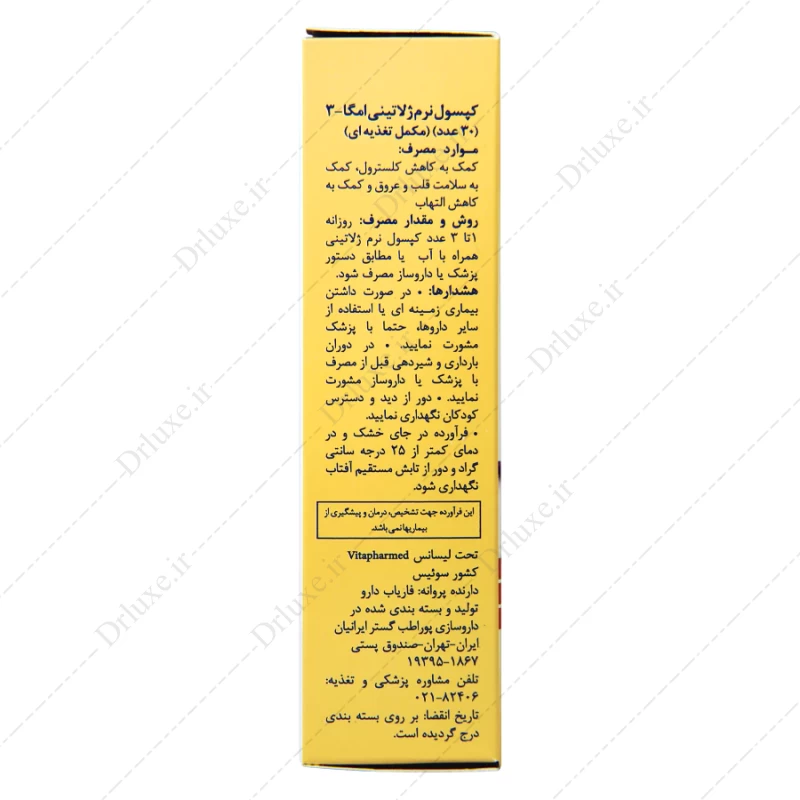 کپسول نرم ژلاتینی امگا-۳
(۳۰ عدد) (مکمل تغذیه ای)
موارد مصرف:
کمک به کاهش کلسترول، کمک
به سلامت قلب و عروق و کمک به
کاهش التهاب
روش و مقدار مصرف: روزانه
۱تا ۳ عدد کپسول نرم ژلاتینی
همراه با آب یا مطابق دستور
پزشک یا داروساز مصرف شود.
هشدارها: • در صورت داشتن
بیماری زمینه ای یا استفاده از
سایر داروها، حتما با پزشک
مشورت نمایید. • در دوران
بارداری و شیردهی قبل از مصرف
با پزشک یا داروساز مشورت
نمایید. • دور از دید و دسترس
کودکان نگهداری نمایید.
• فرآورده در جای خشک و در
دمای کمتر از ۲۵ درجه سانتی
گراد و دور از تابش مستقیم آفتاب
نگهداری شود.
این فرآورده جهت تشخیص، درمان و پیشگیری از
بیماریها نمی باشد.
تحت لیسانس Vitapharmed
کشور سوئیس
دارنده پروانه: فاریاب دارو
تولید و بسته بندی شده در
داروسازی پوراطب گستر ایرانیان
ایران-تهران-صندوق پستی
۱۹۳۹۵-۱۸۶۷
تلفن مشاوره پزشکی و تغذیه:
۰۲۱-۸۲۴۰۶
تاریخ انقضا: بر روی بسته بندی
درج گردیده است.
Drluxe.ir
Drluxe.ir
Drluxe.ir
Drluxe.ir
Drluxe.ir
Drluxe.ir
Drluxe.ir
Drluxe.ir
Drluxe.ir